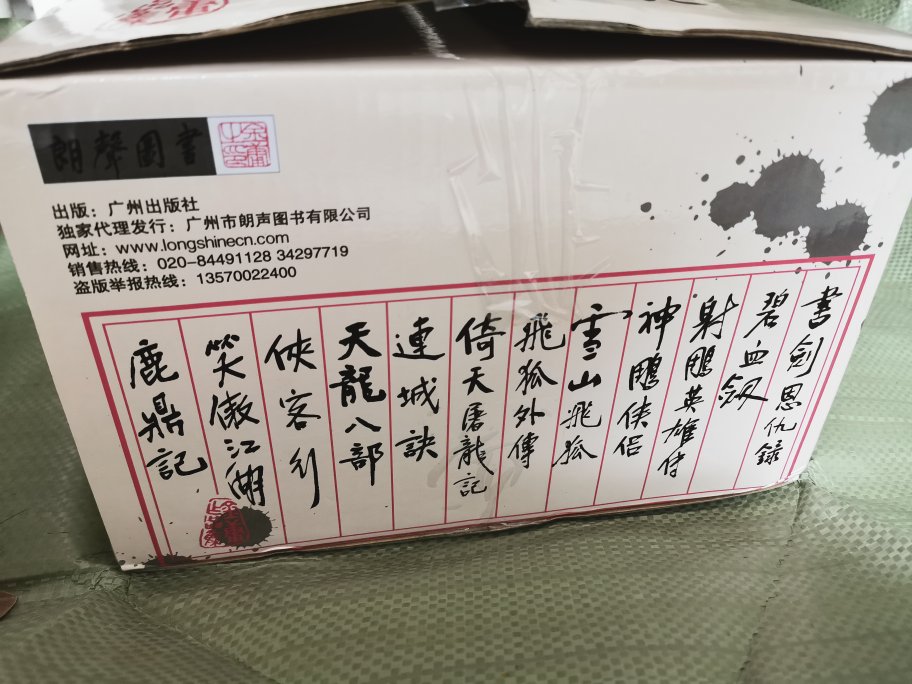 朗聲圖書
出版：广州出版社
独家代理发行：广州市朗声图书有限公司
网址：www.longshinecn.com
销售热线：020-84491128 34297719
盗版举报热线：13570022400
書劍恩仇錄
碧血劔
射鵰英雄传
神鵰侠侣
雪山飛狐
飛狐外傳
倚天屠龍記
連城訣
天龍八部
俠客行
笑傲江湖
鹿鼎記